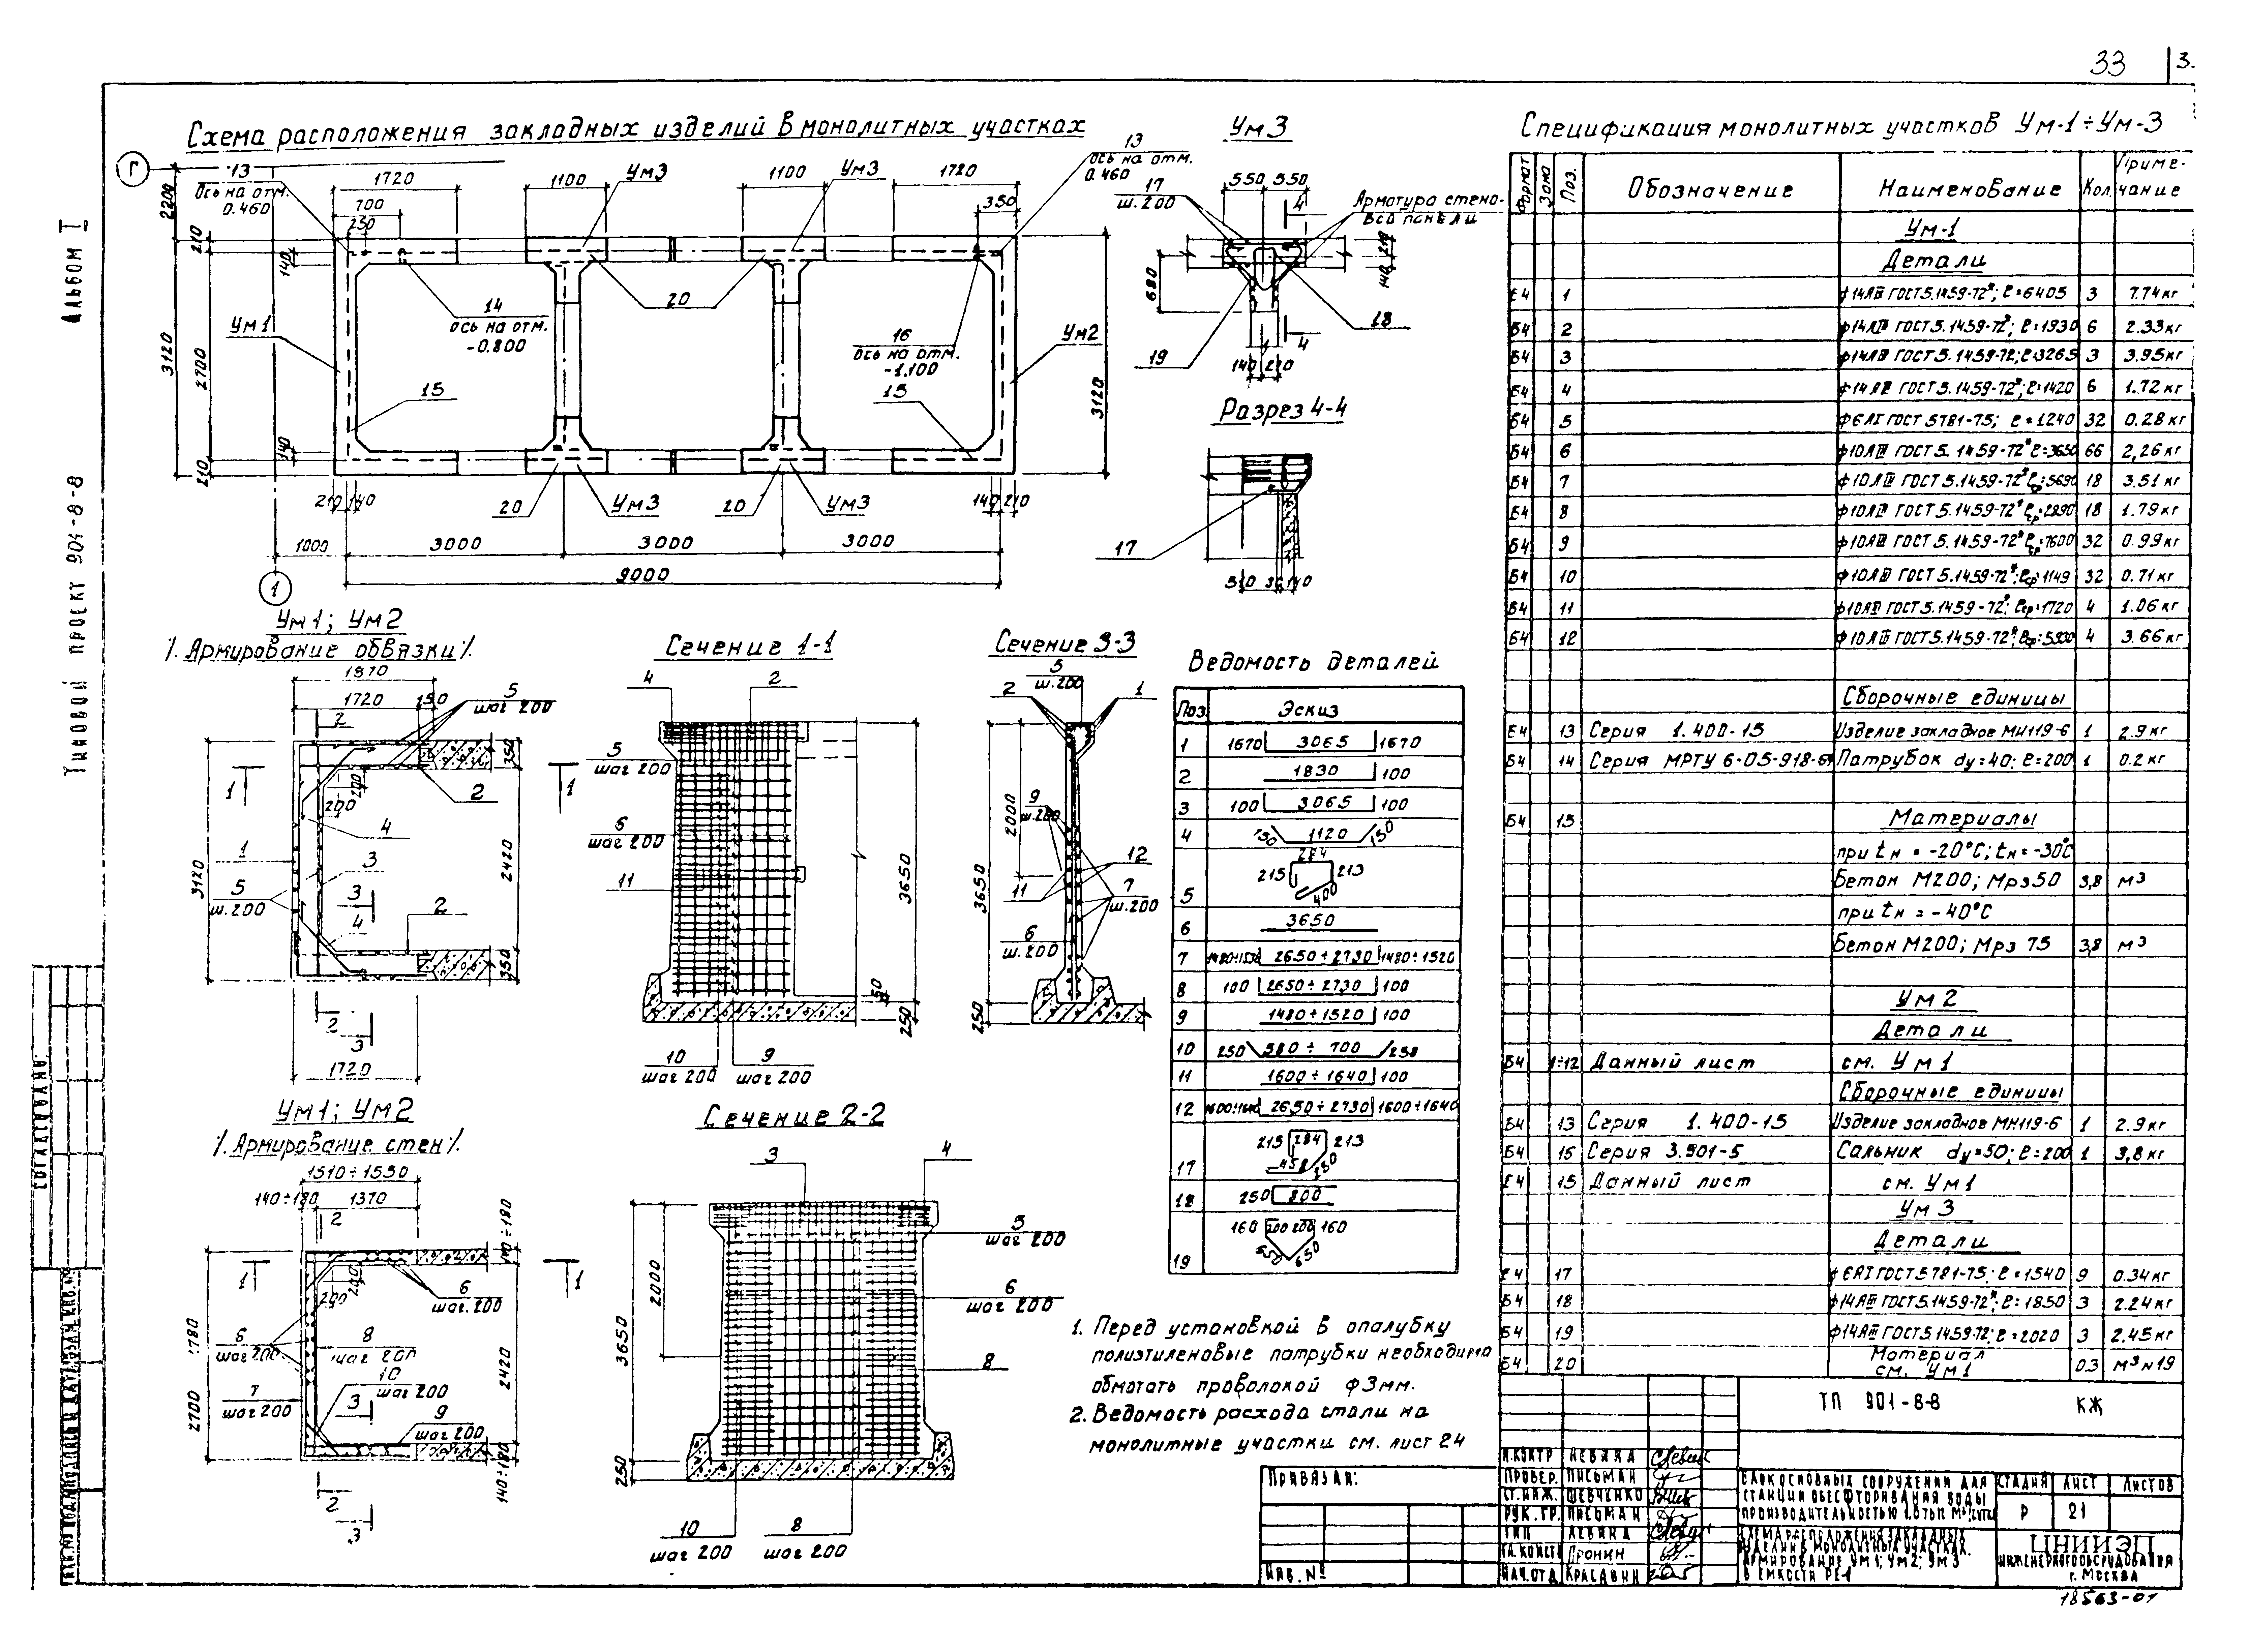 33
3.
Альбом I
Типовой проект 901-8-8
Схема расположения закладных изделий в монолитных участках
Г
13
ось на отм.
0.460
1720
700
250
1100
Ум3
1100
Ум3
1720
350
13
ось на отм.
0.460
2200
210
140
3120
2700
140
210
Ум1
14
ось на отм.
-0.800
20
16
ось на отм.
-1.100
Ум2
15
15
3120
210 140
20
Ум3
20
Ум3
140 210
1000
3000
3000
3000
9000
1
Ум3
17
ш.200
550 550
4
Арматура стено-
вой панели
680
19
18
4
140 210
Разрез 4-4
17
Ум1; Ум2
/. Армирование обвязки /.
1870
1720
150
5
шаг 200
2
350
1
1
2
200
200
4
1
3
3120
5
ш.200
3
2
4
2420
350
2
3
1720
Сечение 1-1
4
2
5
шаг 200
6
шаг 200
11
3650
50
250
10
шаг 200
9
шаг 200
Сечение 3-3
5
ш.200
2
1
2000
9
ш.200
3650
12
11
7
ш.200
6
ш.200
250
Ум1; Ум2
/. Армирование стен /.
1510÷1550
140÷180
1370
2
140÷180
1
1
200
200
6
шаг 200
6
шаг 200
8
шаг 200
10
шаг 200
7
шаг 200
3
9
шаг 200
2700
2420
140÷180
2
3
Сечение 2-2
3
4
5
шаг 200
2000
6
шаг 200
3650
8
250
10
шаг 200
8
шаг 200
Ведомость деталей
Поз. Эскиз
1 1670 3065 1670
2 1830 100
3 100 3065 100
4 150 1120 150
5 215 284 213 400
6 3650
7 2650÷2730 1480÷1520
8 100 2650÷2730 100
9 1480÷1520 100
10 250 580÷700 250
11 1600÷1640 100
12 1600÷1640 2650÷2730 1600÷1640
17 215 284 213 458 150
18 250 800
19 160 200 200 160 650 650
1. Перед установкой в опалубку
полиэтиленовые патрубки необходимо
обмотать проволокой ф3мм.
2. Ведомость расхода стали на
монолитные участки см. лист 24
Спецификация монолитных участков Ум-1÷Ум-3
Формат Зона Поз. Обозначение Наименование Кол. Приме-
чание
Ум-1
Детали
Б4 1 ф14АIII ГОСТ 5.1459-72*; ℓ=6405 3 7.74кг
Б4 2 ф14АIII ГОСТ 5.1459-72*; ℓ=1930 6 2.33кг
Б4 3 ф14АIII ГОСТ 5.1459-72; ℓ=3265 3 3.95кг
Б4 4 ф14АIII ГОСТ 5.1459-72*; ℓ=1420 6 1.72кг
Б4 5 ф6АI ГОСТ 5781-75; ℓ=1240 32 0.28кг
Б4 6 ф10АIII ГОСТ 5.1459-72* ℓ=3650 66 2,26кг
Б4 7 ф10АIII ГОСТ 5.1459-72* ℓср=5690 18 3.51кг
Б4 8 ф10АIII ГОСТ 5.1459-72* ℓср=2890 18 1.79кг
Б4 9 ф10АIII ГОСТ 5.1459-72* ℓср=1600 32 0.99кг
Б4 10 ф10АIII ГОСТ 5.1459-72*; ℓср=1149 32 0.71кг
Б4 11 ф10АIII ГОСТ 5.1459-72*; ℓср=1720 4 1.06кг
Б4 12 ф10АIII ГОСТ 5.1459-72*; ℓср=5930 4 3.66кг
Сборочные единицы
Б4 13 Серия 1.400-15 Изделие закладное МН119-6 1 2.9кг
Б4 14 Серия МРТУ 6-05-918-67 Патрубок dу=40; ℓ=200 1 0.2кг
Б4 15 Материалы
при tн = -20°С; tн = -30°С
Бетон М200; Мрз50 3,8 м3
при tн = -40°С
Бетон М200; Мрз 75 3,8 м3
Ум2
Детали
Б4 1÷12 Данный лист см. Ум1
Сборочные единицы
Б4 13 Серия 1.400-15 Изделие закладное МН119-6 1 2.9кг
Б4 16 Серия 3.901-5 Сальник dу=50; ℓ=200 1 3,8кг
Б4 15 Данный лист см. Ум1
Ум3
Детали
Б4 17 ф6АI ГОСТ 5781-75; ℓ=1540 9 0.34кг
Б4 18 ф14АIII ГОСТ 5.1459-72*; ℓ=1850 3 2.24кг
Б4 19 ф14АIII ГОСТ 5.1459-72; ℓ=2020 3 2.45кг
Б4 20 Материал
см. Ум1 0.3 м3
ТП 901-8-8 КЖ
Н.контр Левина
Провер. Письман
Ст.инж. Шевченко
Рук.гр. Письман
ГИП Левина
Гл.конст Пронин
Нач.отд Красавин
Привязан:
Инв.№
Блок основных сооружений для
станции обесфторивания воды
Стадия Лист Листов
Р 21
Схема расположения закладных
изделий в монолитных участках.
Армирование Ум1; Ум2; Ум3
в емкости РЕ-1
ЦНИИЭП
инженерного оборудования
г. Москва
18563-01
Согласовано